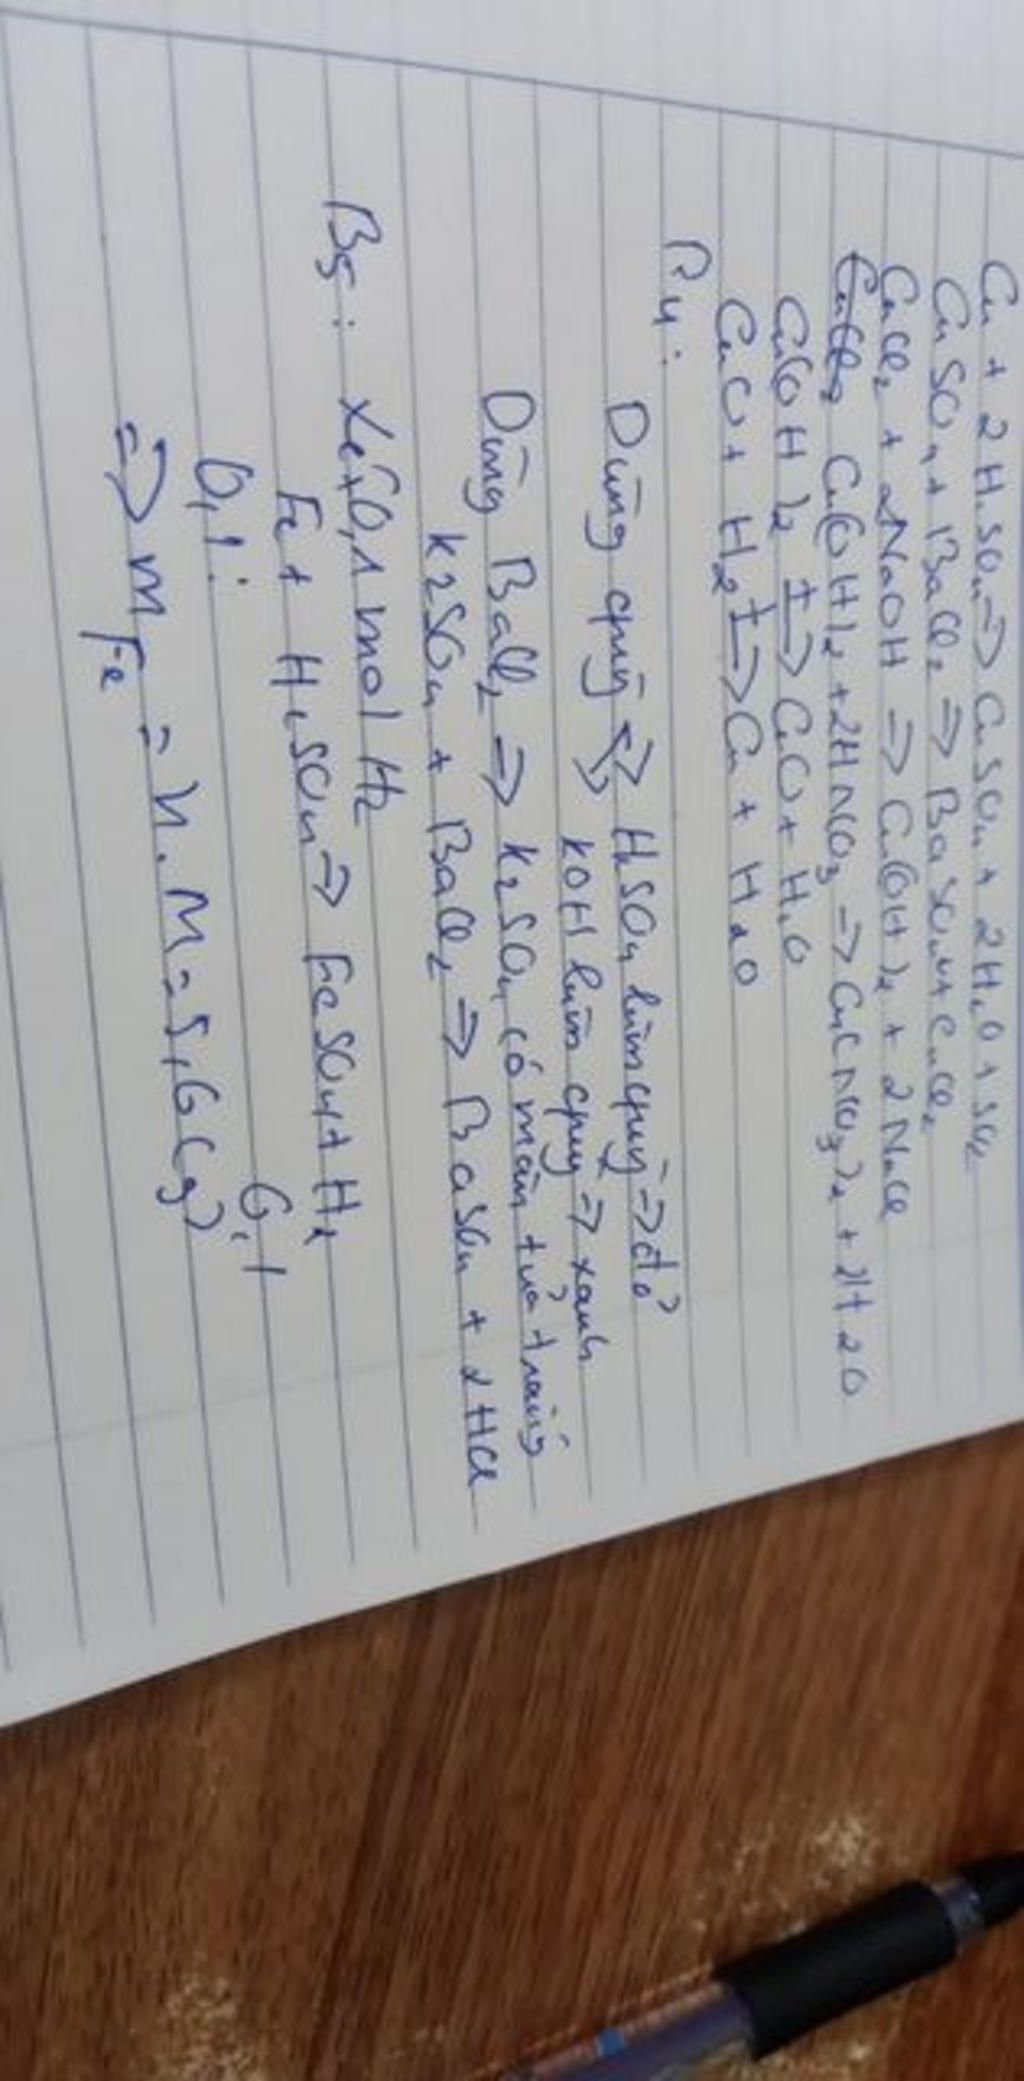 Cu + 2H2SO4 => CuSO4 + 2H2O + SO2
CuSO4 + BaCl2 => BaSO4 + CuCl2
CuCl2 + 2NaOH => Cu(OH)2 + 2NaCl
Cu(OH)2 + 2HNO3 => Cu(NO3)2 + 2H2O
Cu(OH)2 t=> CuO + H2O
CuO + H2 t=> Cu + H2O
B4:
Dùng quỳ => H2SO4 làm quỳ => đỏ
KOH làm quỳ => xanh
Dùng BaCl2 => K2SO4 có màu tủa trắng
K2SO4 + BaCl2 => BaSO4 + 2HCl
B5: Xét 0,1 mol H2
Fe + H2SO4 => FeSO4 + H2
0,1 : 0,1
=> mFe = n.M = 5,6(g)